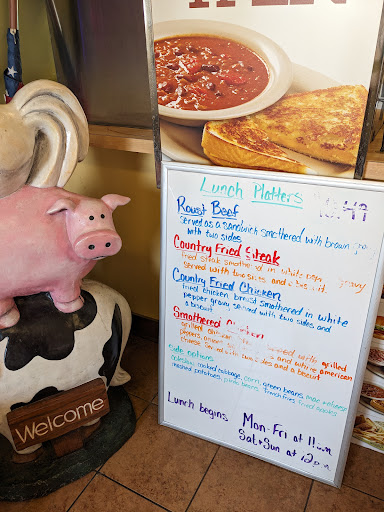 Lunch Platters
Roast Beef
Served as a sandwich smothered with brown
with two sides
Country Fried Steak
fried steak smothered in white
served with two sides and a biscuit
Country Fried Chicken
fried chicken breast smothered in white
pepper gravy served with two sides and
a biscuit
Smothered
grilled
peppers, and white american
cheese served with two sides and a biscuit
Side options
coleslaw, cooked cabbage, corn, green beans, mac + cheese
mashed potatoes, pinto beans, french fries, fried apples
Lunch begins Mon-Fri at 11am
Sat + Sun at 12pm
Welcome